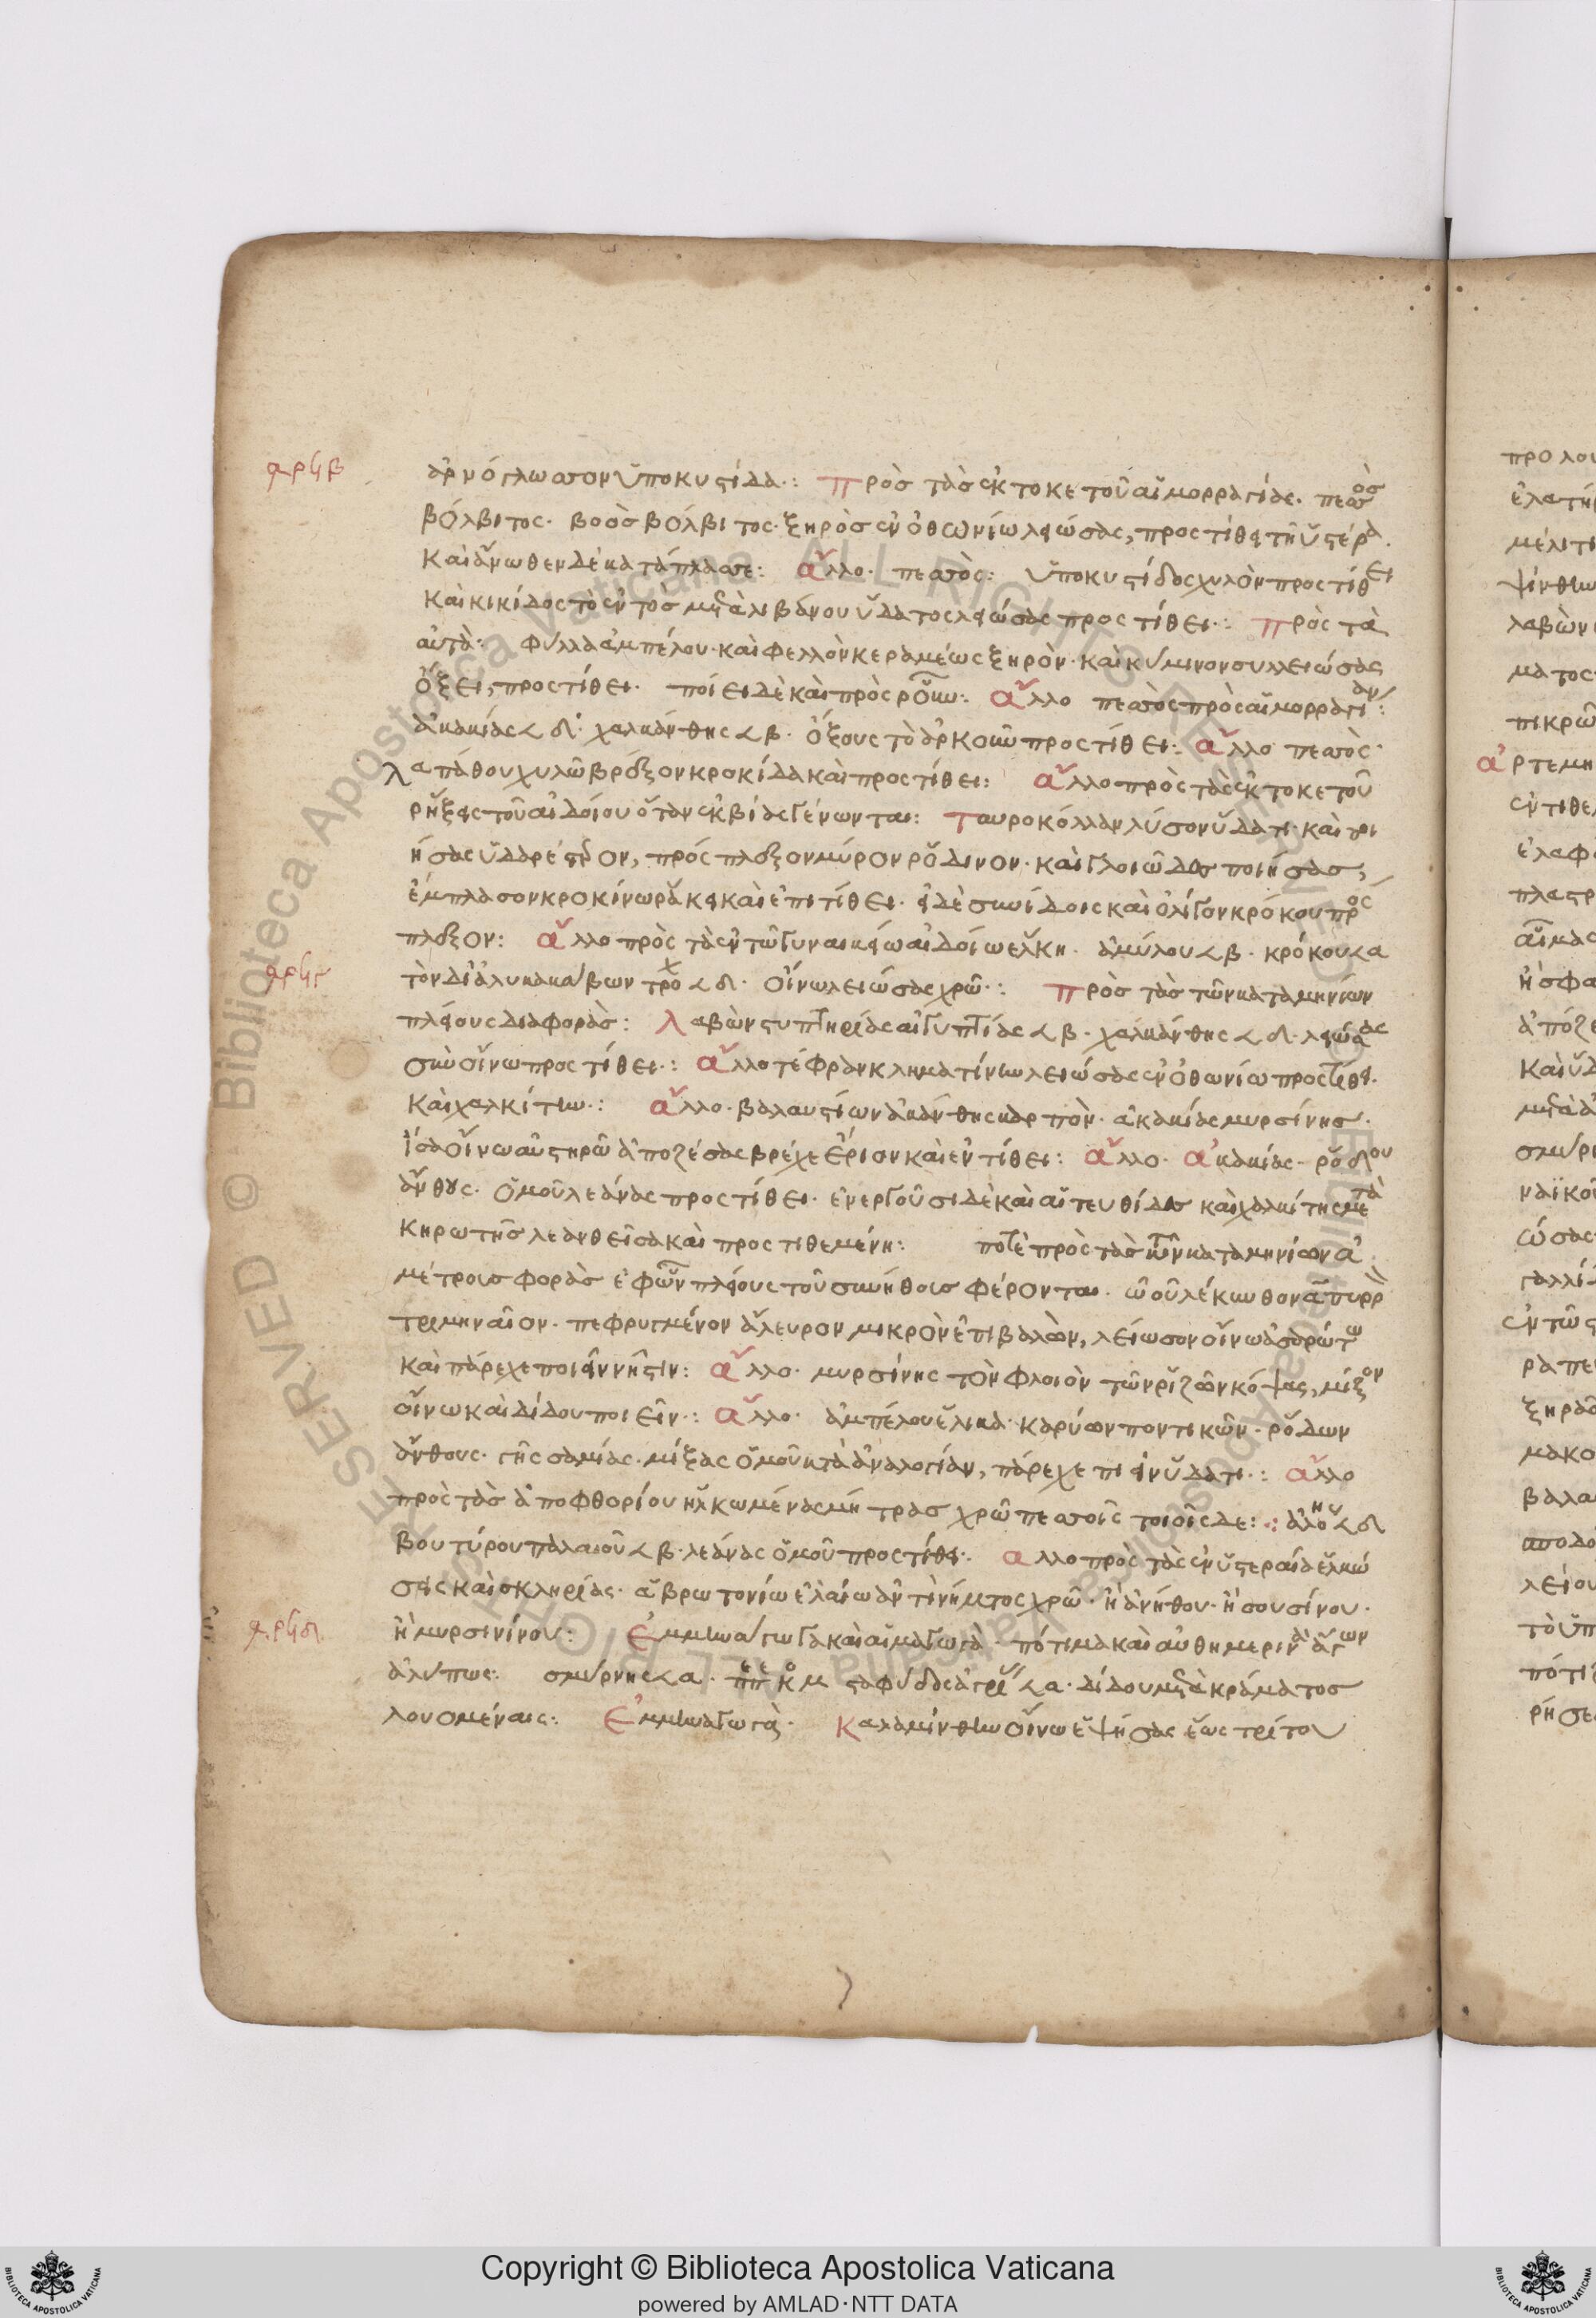 ἀρνόγλωσσον ὑποκυστίδα·: πρὸσ τὰσ ἐκ τοκετοῦ αἱμορραγίας. πεσσὸσ
βόλβιτος· βοὸσ βόλβιτος· ξηρὸσ ἐν ὀθωνίω λειώσας, προστίθει τῆ ὑστέρα.
καὶ ἄνωθεν δὲ κατάπλασσε: ἄλλο· πεσσὸς: ὑποκυστίδος χυλὸν προστίθει
καὶ κικίδος τὸ ἐντὸσ μετὰ λιβάνου ὕδατος λειώσας προστίθει·: πρὸς τὰ
αὐτὰ· φύλλα ἀμπέλου· καὶ φελλὸν κεραμέως ξηρὸν· καὶ κύμινον συλλειώσας
ὄξει, προστίθει· ποίει δὲ καὶ πρὸς ῥοῦν: ἄλλο πεσσὸς πρὸς αἱμορραγίαν:
ἀκακίας δ· χαλκάνθης β· ὄξους τὸ ἀρκοῦν προστίθει: ἄλλο πεσσὸς·
λαπάθου χυλῶ βρέξον κροκίδα καὶ προστίθει: ἄλλο πρὸς τὰς ἐκ τοκετοῦ
ῥήξεις τοῦ αἰδοίου ὅταν ἐκ βίας γένωνται: ταυροκόλλαν λύσον ὕδατι καὶ ποι
ήσας ὑδαρέστερον, πρόσπλεξον μύρον ῥόδινον· καὶ γλοιῶδεσ ποιήσασ,
ἔμπλασον κροκίνω ῥάκει καὶ ἐπιτίθει· εἰ δὲ συνίδοις καὶ ὀλίγον κρόκου προσ
πλεξον: ἄλλο πρὸς τὰ ἐν τῶ γυναικείω αἰδοίω ἕλκη· ἀμύλου β· κρόκου α
τὸν δι' ἁλυκακάβων τροχ δ· οἴνω λειώσας χρῶ·: πρὸσ τὰσ τῶν καταμηνίων
πλείους διαφορὰσ: λαβὼν στυπτηρίας αἰγυπτίας β· χαλκάνθης δ· λειώσας
σὺν οἴνω προστίθει·: ἄλλο τέφραν κληματίνην λειώσας ἐν ὀθωνίω προστίθει·
καὶ χαλκίτιν·: ἄλλο· βαλαυστίων ἀκάνθης καρπὸν· ἀκακίας μυρσίνησ·
ἴσα οἴνω αὐστηρῶ ἀποζέσας βρέχε ἔριον καὶ ἐντίθει: ἄλλο· ἀκακίας· ῥόδου
ἄνθους· ὁμοῦ λεάνας προστίθει· ἐνεργοῦσι δὲ καὶ αἱ τευθίδεσ καὶ χαλκίτης μετὰ
κηρωτῆσ λεανθεῖσα καὶ προστιθεμένη: ποτὲ πρὸς τὰσ τῶν καταμηνίων ἀ
μέτρουσ φορὰσ ἐφ' ὧν πλείους τοῦ συνήθουσ φέρονται· ὠοῦ λέκυνθον ἄπυρρ
τριμηναῖον· πεφρυγμένον ἄλευρον μικρὸν ἐπιβαλὼν, λείωσον οἴνω ἀσαρώτω
καὶ πάρεχε ποιεῖν νῆστιν: ἄλλο· μυρσίνης τὸν φλοιὸν τῶν ῥιζῶν κόψας, μίξον
οἴνω καὶ δίδου ποιεῖν·: ἄλλο· ἀμπέλου ἕλικα· καρύων ποντικῶν· ῥόδων
ἄνθους· γῆς σαμίας· μίξας ὁμοῦ κατὰ ἀναλογίαν, πάρεχε πιεῖν ὕδατι·: ἄλλο
πρὸς τὰσ ἀποφθορίου ἡλκωμένας μήτρασ χρῶ πεσσοῖς τοιοῖςδε: ἀλόης δ
βουτύρου παλαιοῦ β· λεάνας ὁμοῦ προστίθει· αλλο πρὸς τὰς ἐν ὑστεραία ἑλκώ
σεις καὶ σκληρίας· ἀβρωτονίω ἐλαίω ἀντὶ νήματος χρῶ· ἢ ἀνήθου· ἢ σουσίνου·
ἢ μυρσινίνου: ἐμμηναγωγὰ καὶ αἱμαγωγὰ· πότιμα καὶ αὐθημερινὰ ἄγων
ἀλύπως: σμύρνης α· σταφύδος ἀγρί α· δίδου μετὰ κράματοσ
λουομέναις: ἐμμηναγωγὰ· καλαμίνθην οἴνω ἑψήσας ἕως τρίτου
Copyright © Biblioteca Apostolica Vaticana
powered by AMLAD·NTT DATA